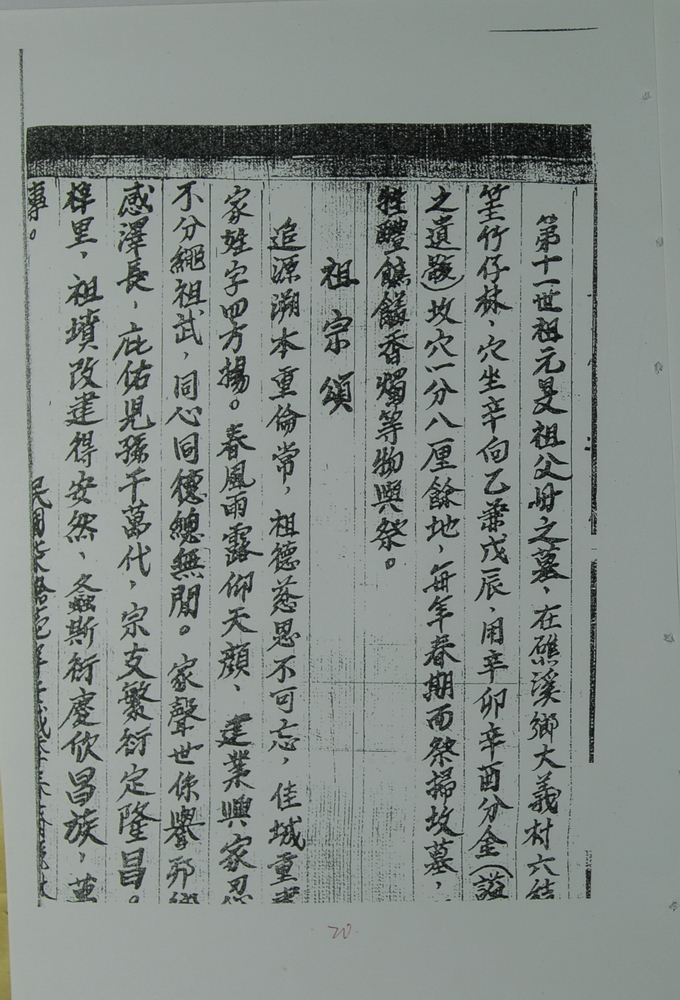 第十一世祖元旻祖父母之墓、在礁溪鄉大義村六結
竹仔林、穴坐辛向乙兼戊辰、用辛卯辛酉分金（謚
之遺骸）坟穴一分八厘餘地，每年春期而祭掃坟墓，
牲醴饙饈香燭等物與祭。
祖宗頌
追源溯本重倫常，祖德慈恩不可忘，佳城重
家姓字四方揚。春風雨露仰天顏、建業興家忍
不分繩祖武，同心同德總無間。家聲世係譽邦鄉
感澤長，庇佑兒孫千萬代，宗支繁衍定隆昌。
梓里，祖墳改建得安然、螽斯衍慶欣昌族，
專。
民國
20